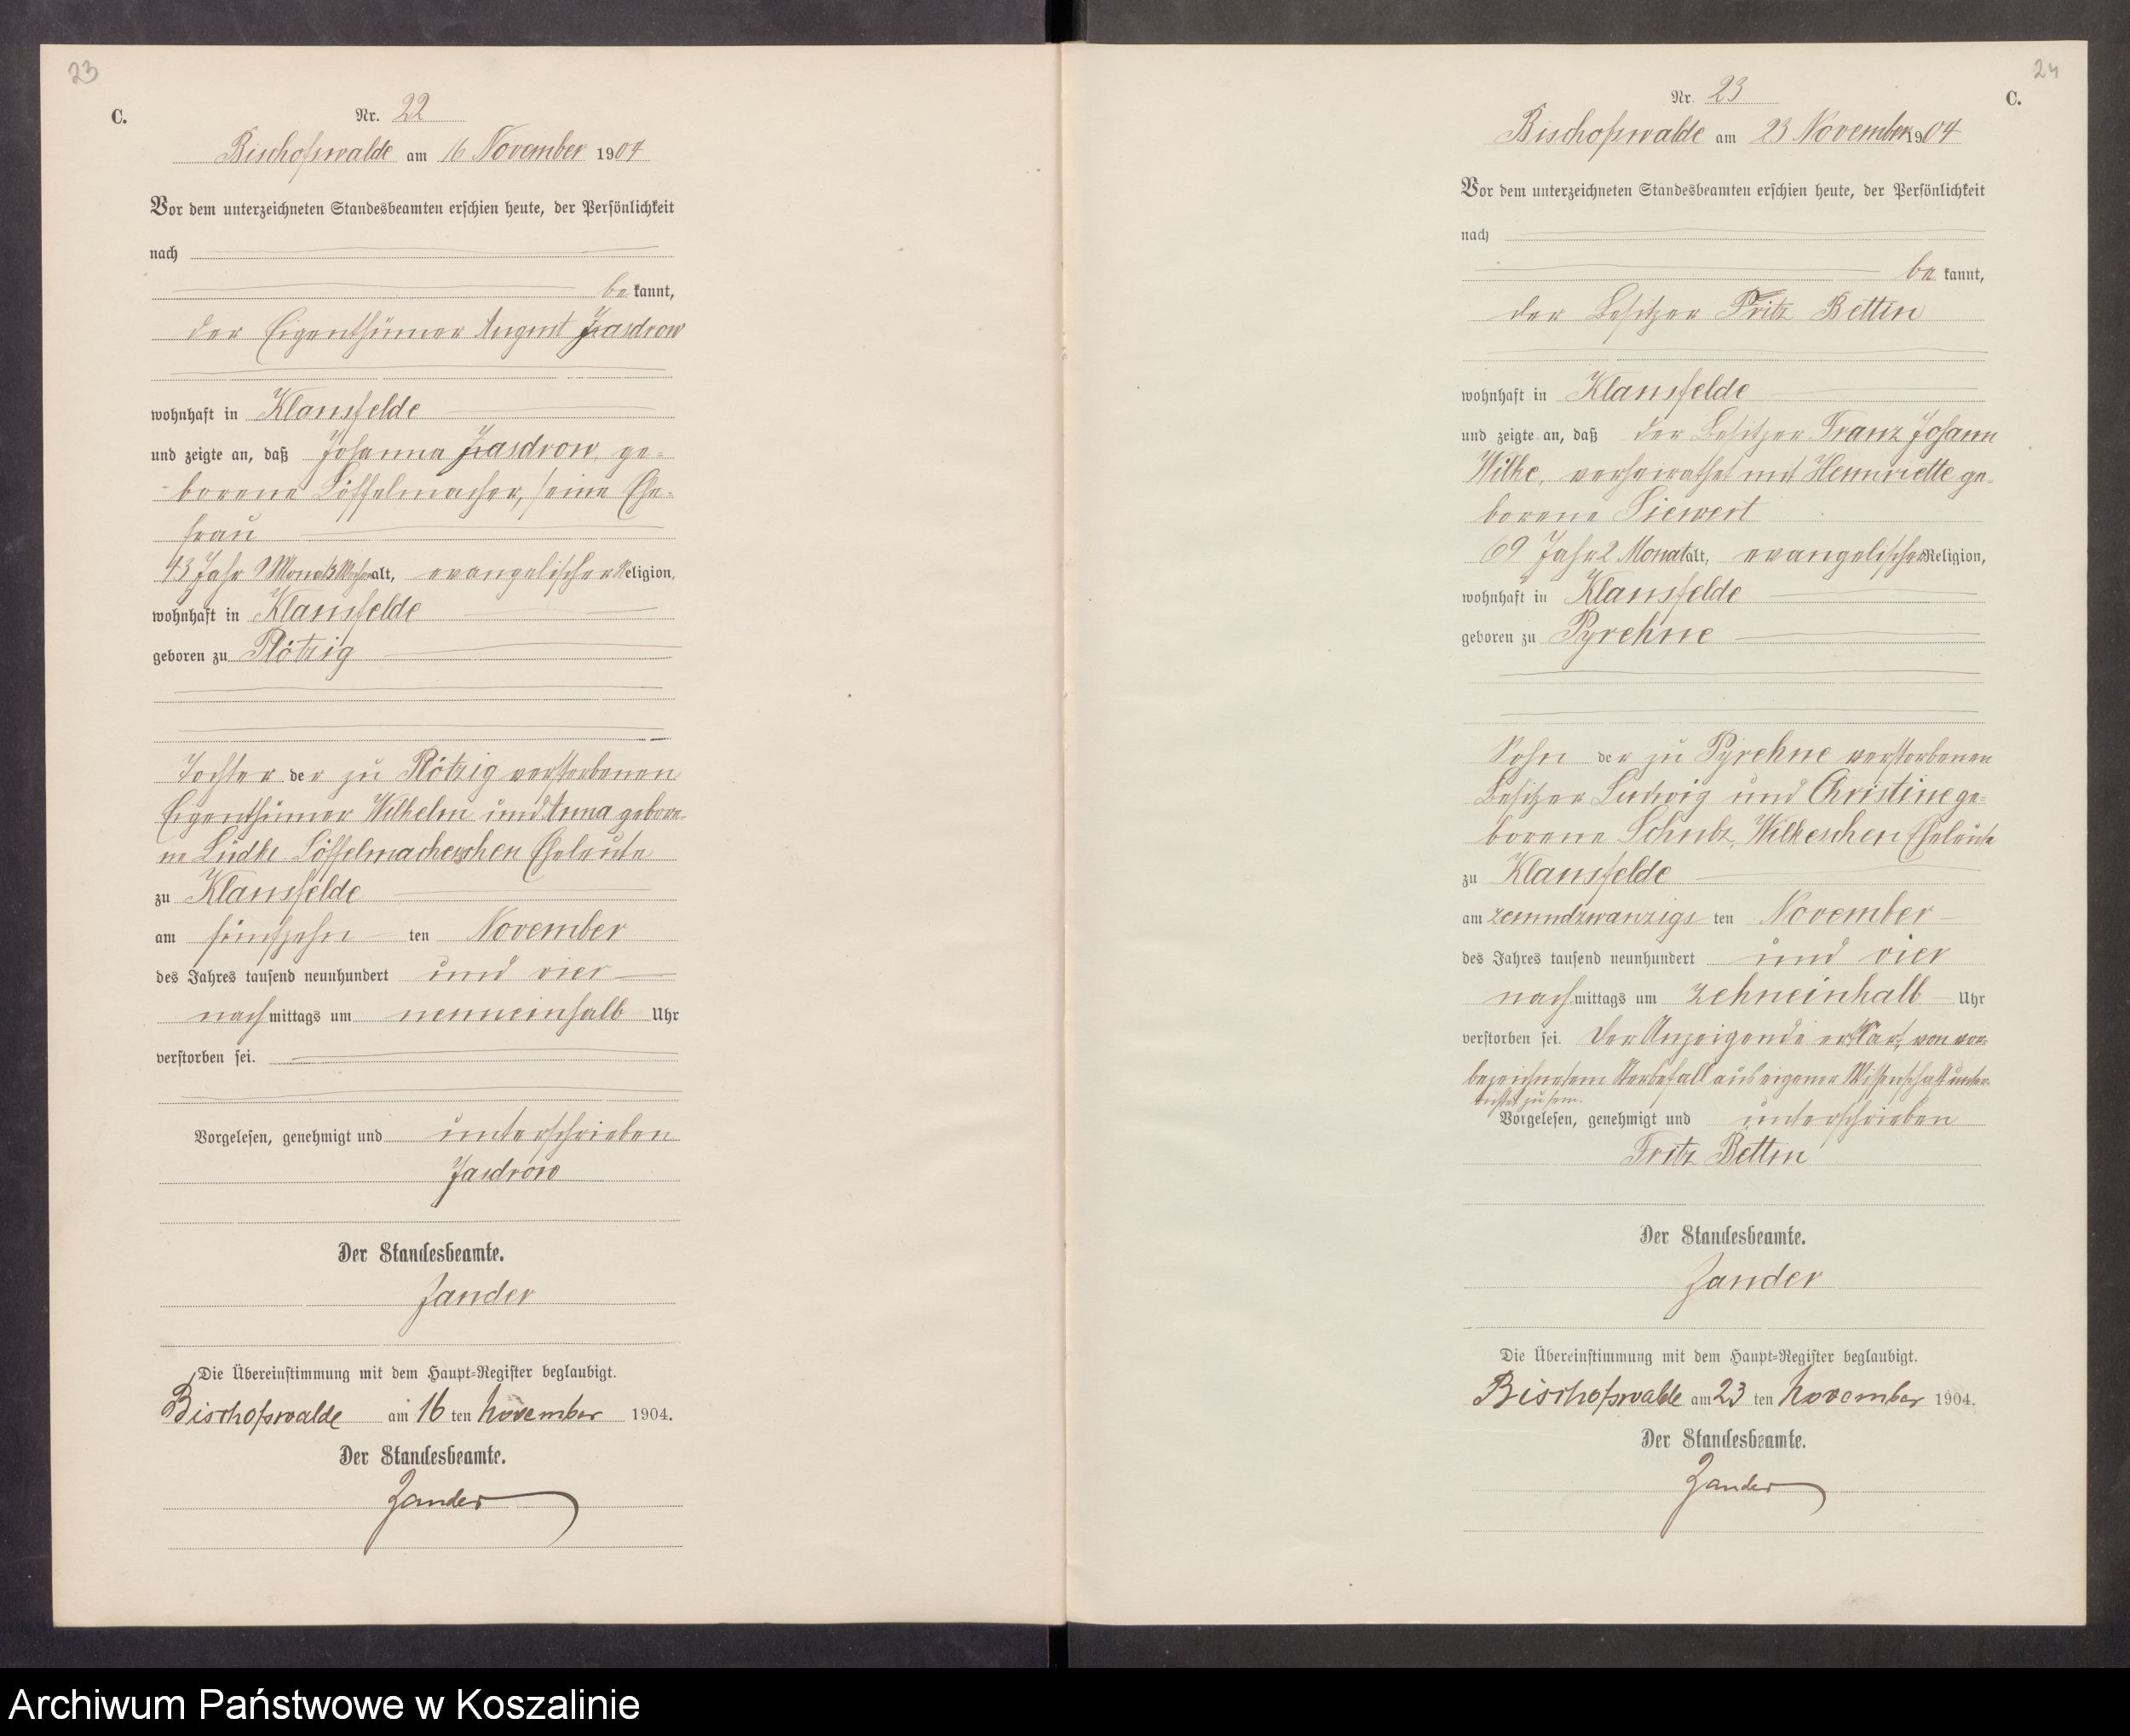 23
C.
Nr. 22
Bischofswalde am 16 November 1904
Vor dem unterzeichneten Standesbeamten erschien heute, der Persönlichkeit
nach
be kannt,
der Eigenthümer August Jasdrow
wohnhaft in Klausfelde
und zeigte an, daß Johanna Jasdrow, ge-
borene Löffelmacher, seine Ehe-
frau
43 Jahr 9 Monat 3 Wochen alt, evangelischer Religion,
wohnhaft in Klausfelde
geboren zu Plötzig
Tochter der zu Plötzig verstorbenen
Eigenthümer Wilhelm und Anna gebore-
ne Lüdke Löffelmacherschen Eheleute
zu Klausfelde
am fünfzehn ten November
des Jahres tausend neunhundert und vier
nach mittags um neuneinhalb Uhr
verstorben sei.
Vorgelesen, genehmigt und unterschrieben
Jasdrow
Der Standesbeamte.
Zander
Die Übereinstimmung mit dem Haupt-Register beglaubigt.
Bischofswalde am 16 ten November 1904.
Der Standesbeamte.
Zander
24
C.
Nr. 23
Bischofswalde am 23 November 1904
Vor dem unterzeichneten Standesbeamten erschien heute, der Persönlichkeit
nach
be kannt,
der Besitzer Fritz Bettin
wohnhaft in Klausfelde
und zeigte an, daß der Besitzer Franz Johann
Wilke, verheirathet mit Hennriette ge-
borene Siewert
69 Jahr 2 Monat alt, evangelischer Religion,
wohnhaft in Klausfelde
geboren zu Pyrehne
Sohn der zu Pyrehne verstorbenen
Besitzer Ludwig und Christine ge-
borene Schulz, Wilkeschen Eheleute
zu Klausfelde
am ten November
des Jahres tausend neunhundert und vier
nach mittags um zehneinhalb Uhr
verstorben sei. Der Anzeigende erklärt, von vor-
bezeichnetem Sterbefall aus eigener Wissenschaft unter-
richtet zu sein.
Vorgelesen, genehmigt und unterschrieben
Fritz Bettin
Der Standesbeamte.
Zander
Die Übereinstimmung mit dem Haupt-Register beglaubigt.
Bischofswalde am 23 ten November 1904.
Der Standesbeamte.
Zander
Archiwum Państwowe w Koszalinie